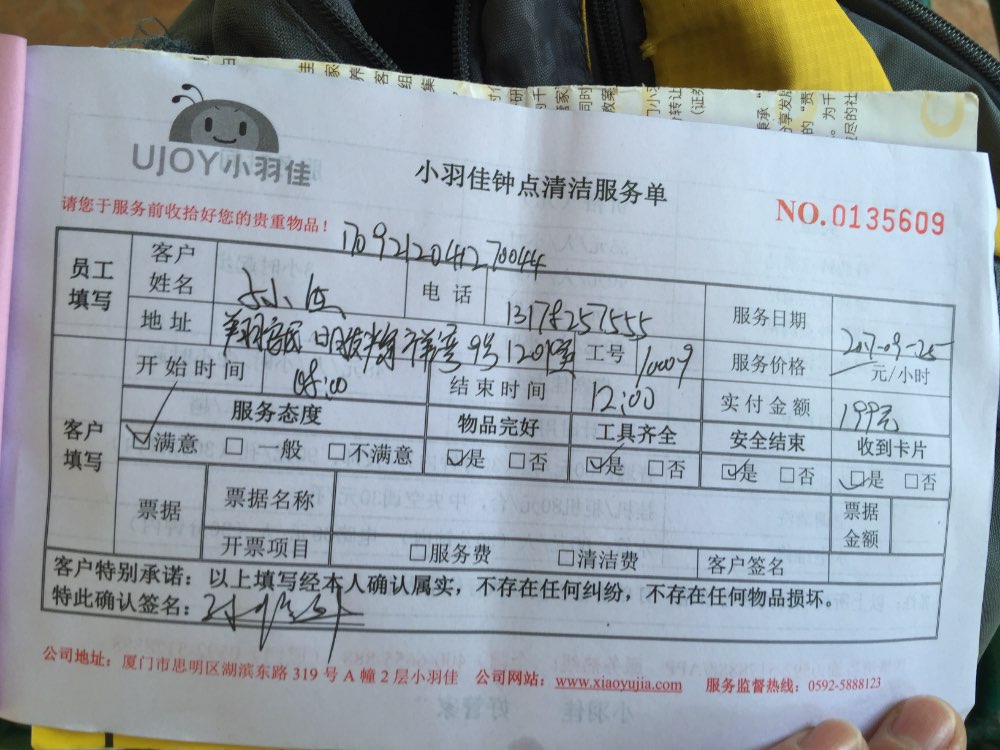 UJOY小羽佳
小羽佳钟点清洁服务单
请您于服务前收拾好您的贵重物品！
NO.0135609
1709212041270044
员工填写
客户姓名
电话 13178257555
服务日期 2017-09-25
地址 9号1201室
工号 10009
服务价格 元/小时
开始时间 08:00
结束时间 12:00
实付金额 199元
客户填写
服务态度 物品完好 工具齐全 安全结束 收到卡片
☑满意 □一般 □不满意 ☑是 □否 ☑是 □否 ☑是 □否 ☑是 □否
票据 票据名称 票据金额
开票项目 □服务费 □清洁费 客户签名
客户特别承诺：以上填写经本人确认属实，不存在任何纠纷，不存在任何物品损坏。
特此确认签名：
公司地址：厦门市思明区湖滨东路 319 号 A 幢 2 层小羽佳 公司网站：www.xiaoyujia.com 服务监督热线：0592-5888123